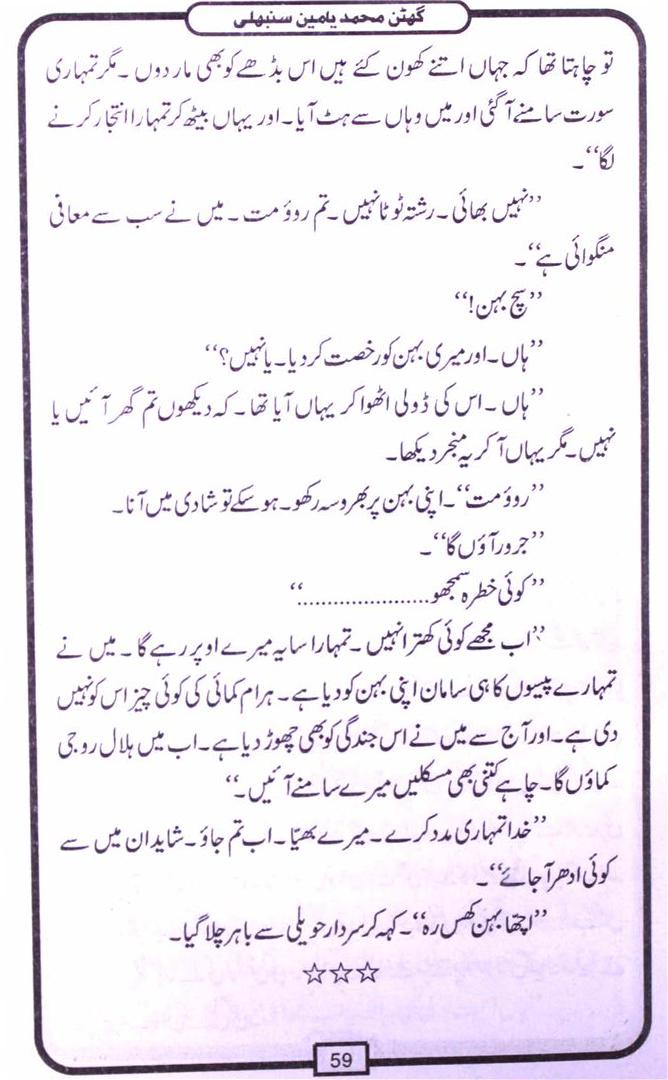 گھٹن محمد یامین سنبھلی
تو چاہتا تھا کہ جہاں اتنے کھون کئے ہیں اس بڈھے کو بھی مار دوں ۔ مگر تمہاری
سورت سامنے آ گئی اور میں وہاں سے ہٹ آیا۔ اور یہاں بیٹھ کر تمہارا انتجار کرنے
لگا‘‘۔
’’نہیں بھائی ۔ رشتہ ٹوٹا نہیں ۔ تم روؤ مت ۔ میں نے سب سے معافی
منگوائی ہے‘‘۔
’’سچ بہن!‘‘
’’ہاں ۔ اور میری بہن کو رخصت کر دیا۔ یا نہیں؟‘‘
’’ہاں ۔ اس کی ڈولی اٹھوا کر یہاں آیا تھا ۔ کہ دیکھوں تم گھر آئیں یا
نہیں۔ مگر یہاں آ کر یہ منجر دیکھا۔
’’روؤ مت‘‘۔ اپنی بہن پر بھروسہ رکھو۔ ہو سکے تو شادی میں آنا۔
’’جرور آؤں گا‘‘۔
’’کوئی خطرہ سمجھو......................‘‘
’’اب مجھے کوئی کھترا نہیں ۔ تمہارا سایہ میرے اوپر رہے گا ۔ میں نے
تمہارے پیسوں کا ہی سامان اپنی بہن کو دیا ہے ۔ ہرام کمائی کی کوئی چیز اس کو نہیں
دی ہے۔ اور آج سے میں نے اس جندگی کو بھی چھوڑ دیا ہے۔ اب میں ہلال روجی
کماؤں گا۔ چاہے کتنی بھی مسکلیں میرے سامنے آئیں۔‘‘
’’خدا تمہاری مدد کرے ۔ میرے بھیّا۔ اب تم جاؤ۔ شاید ان میں سے
کوئی ادھر آ جائے‘‘۔
’’اچّھا بہن کھس رہ‘‘۔ کہہ کر سردار حویلی سے باہر چلا گیا۔
☆☆☆
59